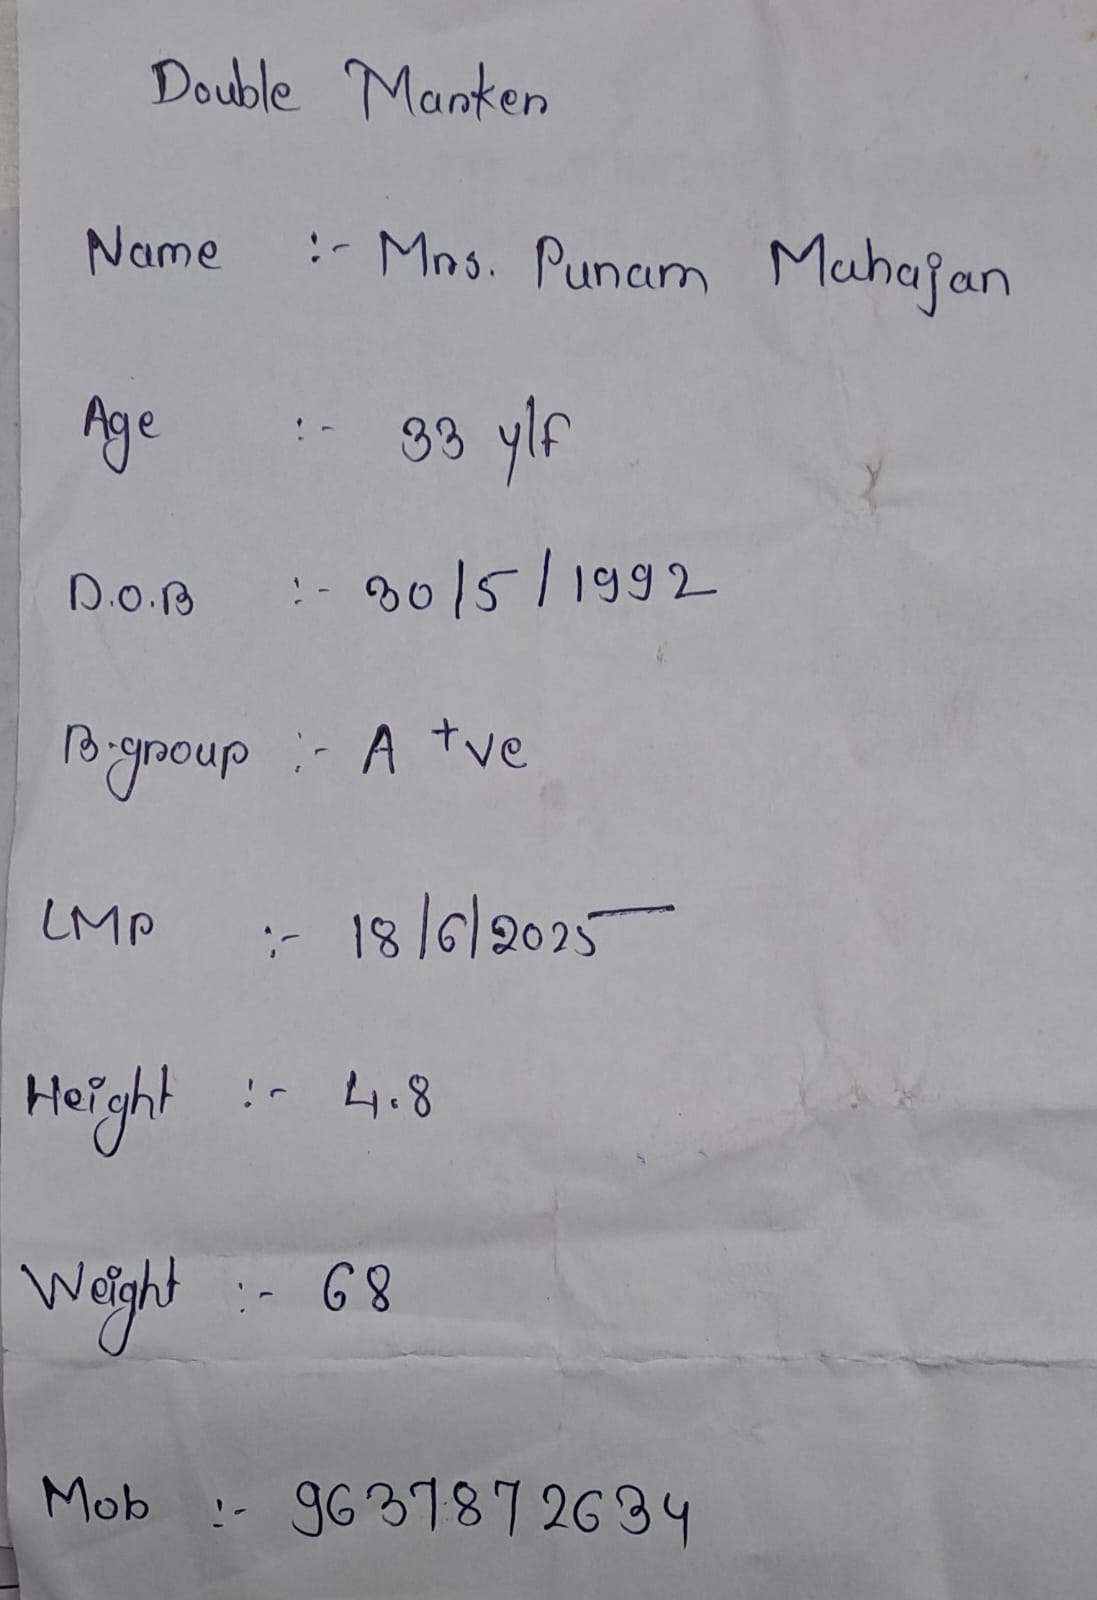 Double Marker
Name :- Mrs. Punam Mahajan
Age :- 33 y/F
D.O.B :- 30/5/1992
B.group :- A +ve
LMP :- 18/6/2025
Height :- 4.8
Weight :- 68
Mob :- 9637872634